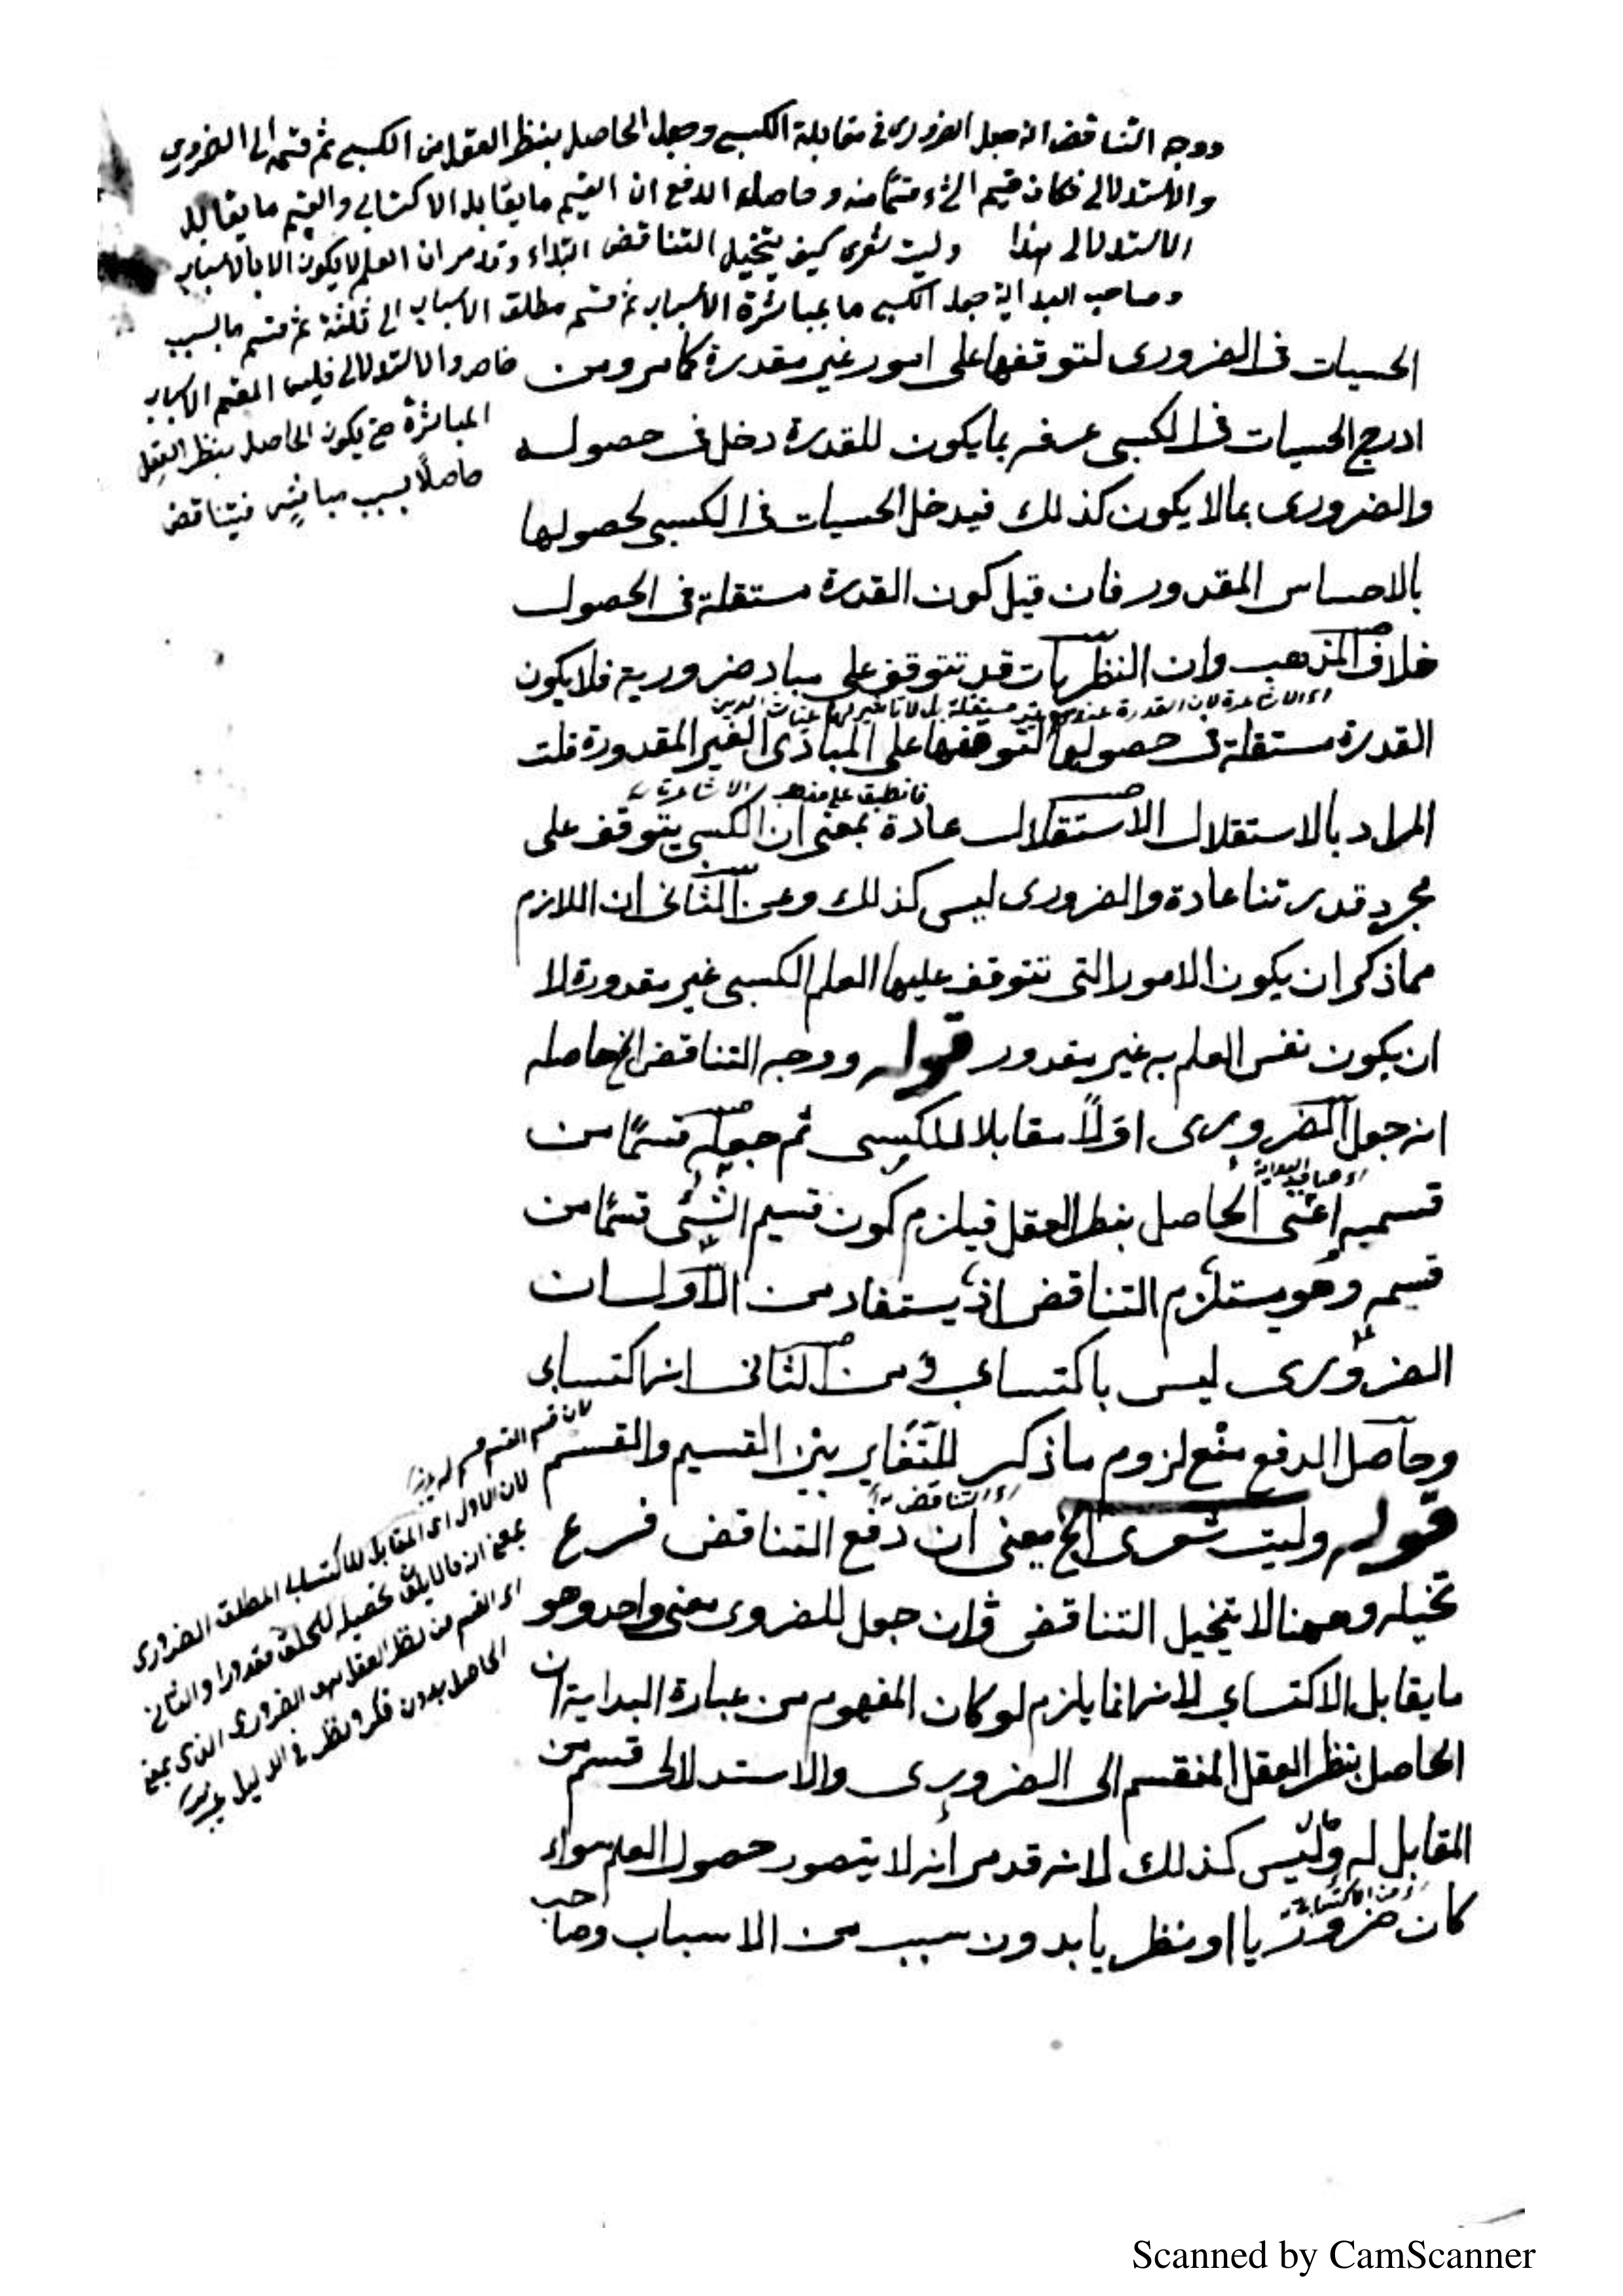 ووجه التناقض انه جعل الضرورى فى مقابلة الكسبى وجعل الحاصل بنظر العقل من الكسبى ثم قسمه الى الضرورى
والاستدلالى فكان قسيم الشئ قسمًا منه وحاصل الدفع ان القسيم ما يقابله الاكتسابى والقسم ما يقابله
الاستدلالى هذا وليت شعرى كيف يتخيل التناقض ابتداء وقد مر ان العلم لا يكون الا بالاسباب
وصاحب البداية جعل الكسبى ما بمباشرة الاسباب ثم قسم مطلق الاسباب الى ثلثة ثم قسم ما بسبب
خاص والاستدلالى فليس المقسم الاسباب
المباشرة حتى يكون الحاصل بنظر العقل
حاصلًا بسبب مباشر فيتناقض
الحسيات فى الضرورى لتوقفها على امور غير مقدرة كما مر ومن
ادرج الحسيات فى الكسبى عرفه بما يكون للقدرة دخل فى حصوله
والضرورى بما لا يكون كذلك فيدخل الحسيات فى الكسبى لحصولها
بالاحساس المقدور فان قيل كون القدرة مستقلة فى الحصول
خلاف المذهب وان النظريات قد تتوقف على مباد ضرورية فلا يكون
اى الاشاعرة لان القدرة عندهم غير مستقلة بل لا تأثير لها
القدرة مستقلة فى حصولها لتوقفها على المبادى الغير المقدورة قلت
فانطبق على مذهب الاشاعرة
المراد بالاستقلال الاستقلال عادة بمعنى ان الكسبى يتوقف على
مجرد قدرتنا عادة والضرورى ليس كذلك وعن الثانى ان اللازم
مما ذكر ان يكون الامور التى تتوقف عليها العلم الكسبى غير مقدورة لا
ان يكون نفس العلم به غير مقدور قوله ووجه التناقض الخ حاصله
انه جعل الضرورى اولًا مقابلا للكسبى ثم جعله قسمًا من
اى صاحب البداية
قسميه اعنى الحاصل بنظر العقل فيلزم كون قسيم الشئ قسمًا من
قسمه وهو يستلزم التناقض اذ يستفاد من الاول ان
الضرورى ليس باكتسابى ومن الثانى انه اكتسابى
وحاصل الدفع منع لزوم ما ذكر للتغاير بين القسيم والقسم
اى التناقض
قوله وليت شعرى الخ يعنى ان دفع التناقض فرع
تخيله وههنا لا يتخيل التناقض وان جعل للضرورى معنى واحد وهو
ما يقابل الاكتسابى لانه انما يلزم لو كان المفهوم من عبارة البداية ان
الحاصل بنظر العقل المنقسم الى الضرورى والاستدلالى قسم من
المقابل له وليس كذلك لانه قد مر انه لا يتصور حصول العلم سواء
من الاكتسابى
كان ضروريا او نظريا بدون سبب من الاسباب وصاحب
لان قسم القسم قسم له
لان الاول اى المقابل للاكتسابى المطلق الضرورى
بمعنى انه ما لا يكون تحصيله للمخلوق مقدورا والثانى
اى القسم من نظر العقل هو الضرورى الذى بمعنى
الحاصل بدون فكر ونظر فى الدليل
Scanned by CamScanner